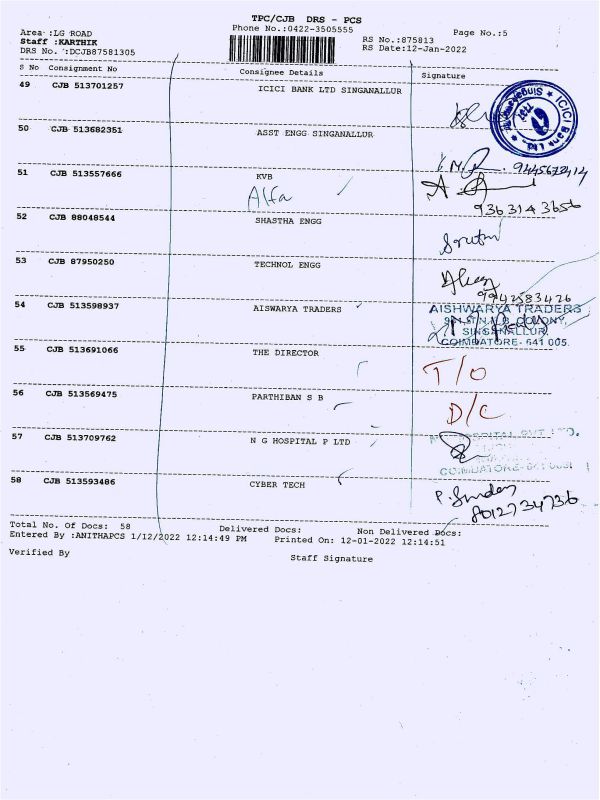 TPC/CJB DRS - PCS
Phone No.:0422-3505555
Area :LG ROAD
Staff :KARTHIK
DRS No. :DCJB87581305
RS No.:875813
RS Date:12-Jan-2022
Page No.:5
S No Consignment No Consignee Details Signature
49 CJB 513701257 ICICI BANK LTD SINGANALLUR
ICICI Bank Ltd.
50 CJB 513682351 ASST ENGG SINGANALLUR
51 CJB 513557666 KVB
Alfa
9363143656
52 CJB 88048544 SHASTHA ENGG
53 CJB 87950250 TECHNOL ENGG
9942583426
54 CJB 513598937 AISWARYA TRADERS
AISHWARYA TRADERS
SINGANALLUR
COIMBATORE- 641 005.
55 CJB 513691066 THE DIRECTOR
T/O
56 CJB 513569475 PARTHIBAN S B
D/C
57 CJB 513709762 N G HOSPITAL P LTD
58 CJB 513593486 CYBER TECH
8012734736
Total No. Of Docs: 58 Delivered Docs: Non Delivered Docs:
Entered By :ANITHAPCS 1/12/2022 12:14:49 PM Printed On: 12-01-2022 12:14:51
Verified By Staff Signature